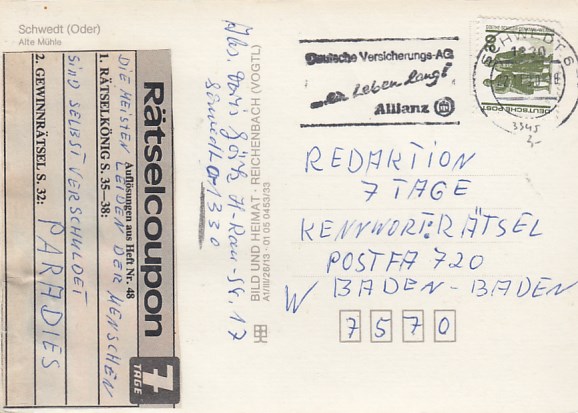 Schwedt (Oder)
Alte Mühle
Rätselcoupon
Auflösungen aus Heft Nr. 48
1. RÄTSELKÖNIG S. 35–38:
DIE MEISTEN LEIDEN DER MENSCHEN
SIND SELBST VERSCHULDET
2. GEWINNRÄTSEL S. 32:
PARADIES
7
TAGE
Abs. Doris
H.-Rau-Str. 17
Schwedt/O 1330
BILD UND HEIMAT · REICHENBACH (VOGTL)
A1/III/26/13 · 01 05 0453/33
Deutsche Versicherungs-AG
Leben lang!
Allianz
SCHWEDT 6
20
DEUTSCHE POST
3345
REDAKTION
7 TAGE
KENNWORT: RÄTSEL
POSTFA 720
W BADEN-BADEN
7570